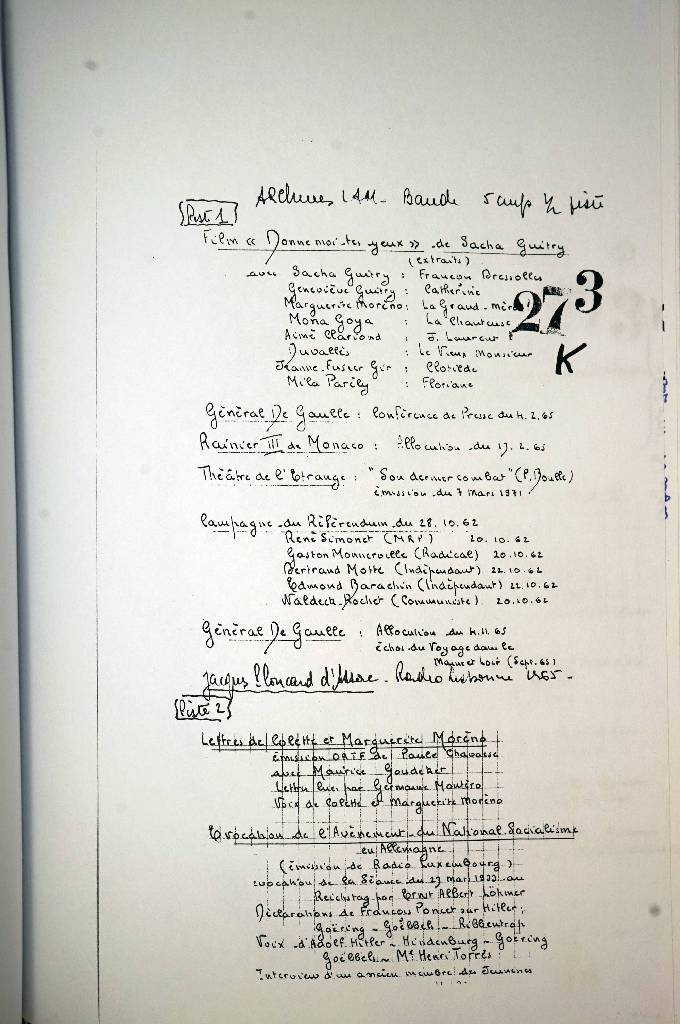 Archives Bande 5 cm/s ½ piste
Piste 1
Film « Donne moi tes yeux » de Sacha Guitry
(extraits)
avec Sacha Guitry : François Bressolles
Geneviève Guitry : Catherine
Marguerite Moréno : La Grand-mère
Mona Goya : La Chanteuse
Aimé Clariond : J. Laurent
Duvallès : Le Vieux Monsieur
Jeanne Fusier Gir : Clotilde
Mila Parély : Floriane
273
K
Général De Gaulle : Conférence de Presse du 4.2.65
Rainier III de Monaco : Allocution du 17.2.65
Théâtre de l'Etrange : "Son dernier combat" (P. Boulle)
émission du 7 Mars 1971
Campagne du Référendum du 28.10.62
René Simonet (MRP) 20.10.62
Gaston Monnerville (Radical) 20.10.62
Bertrand Motte (Indépendant) 22.10.62
Edmond Barachin (Indépendant) 22.10.62
Waldeck-Rochet (Communiste) 20.10.62
Général De Gaulle : Allocution du 4.11.65
échos du Voyage dans le
Maine et Loir (Sept. 65)
Jacques Ploncard d'Assac - Radio Lisbonne 1965 -
Piste 2
Lettres de Colette et Marguerite Moréno
émission ORTF de Paule Chavasse
avec Maurice Goudeket
Lettres lues par Germaine Montéro
Voix de Colette et Marguerite Moréno
Evocation de l'Avènement du National Socialisme
en Allemagne
(émission de Radio Luxembourg)
evocation de la Séance du 23 mars 1933 au
Reichstag par Ernst Albert Löhmer
Déclarations de François Poncet sur Hitler,
Goëring - Goëbbels - Ribbentrop
Voix d'Adolf Hitler - Hindenburg - Goëring
Goëbbels - Me Henri Torrès
Interview d'un ancien membre des Jeunesses